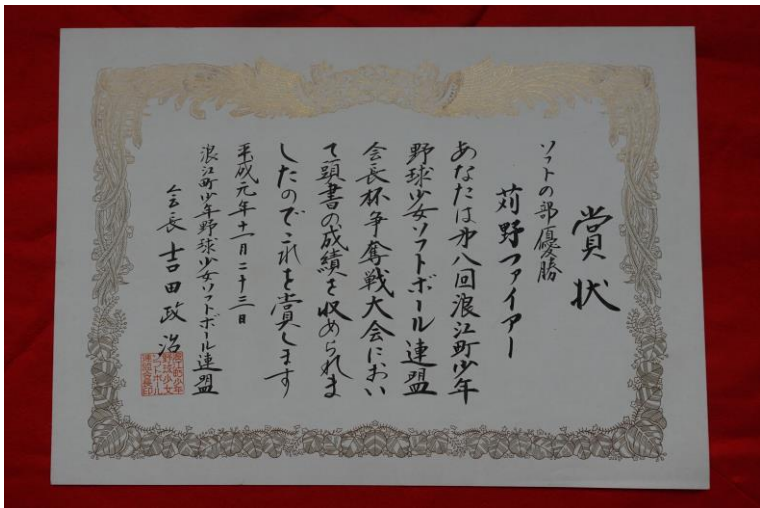 賞状
ソフトの部優勝
苅野ファイアー
あなたは第八回浪江町少年
野球少女ソフトボール連盟
会長杯争奪戦大会におい
て頭書の成績を収められま
したのでこれを賞します
平成元年十一月二十三日
浪江町少年野球少女ソフトボール連盟
会長 吉田政治
浪江町少年
野球少女
ソフトボール
連盟会長印